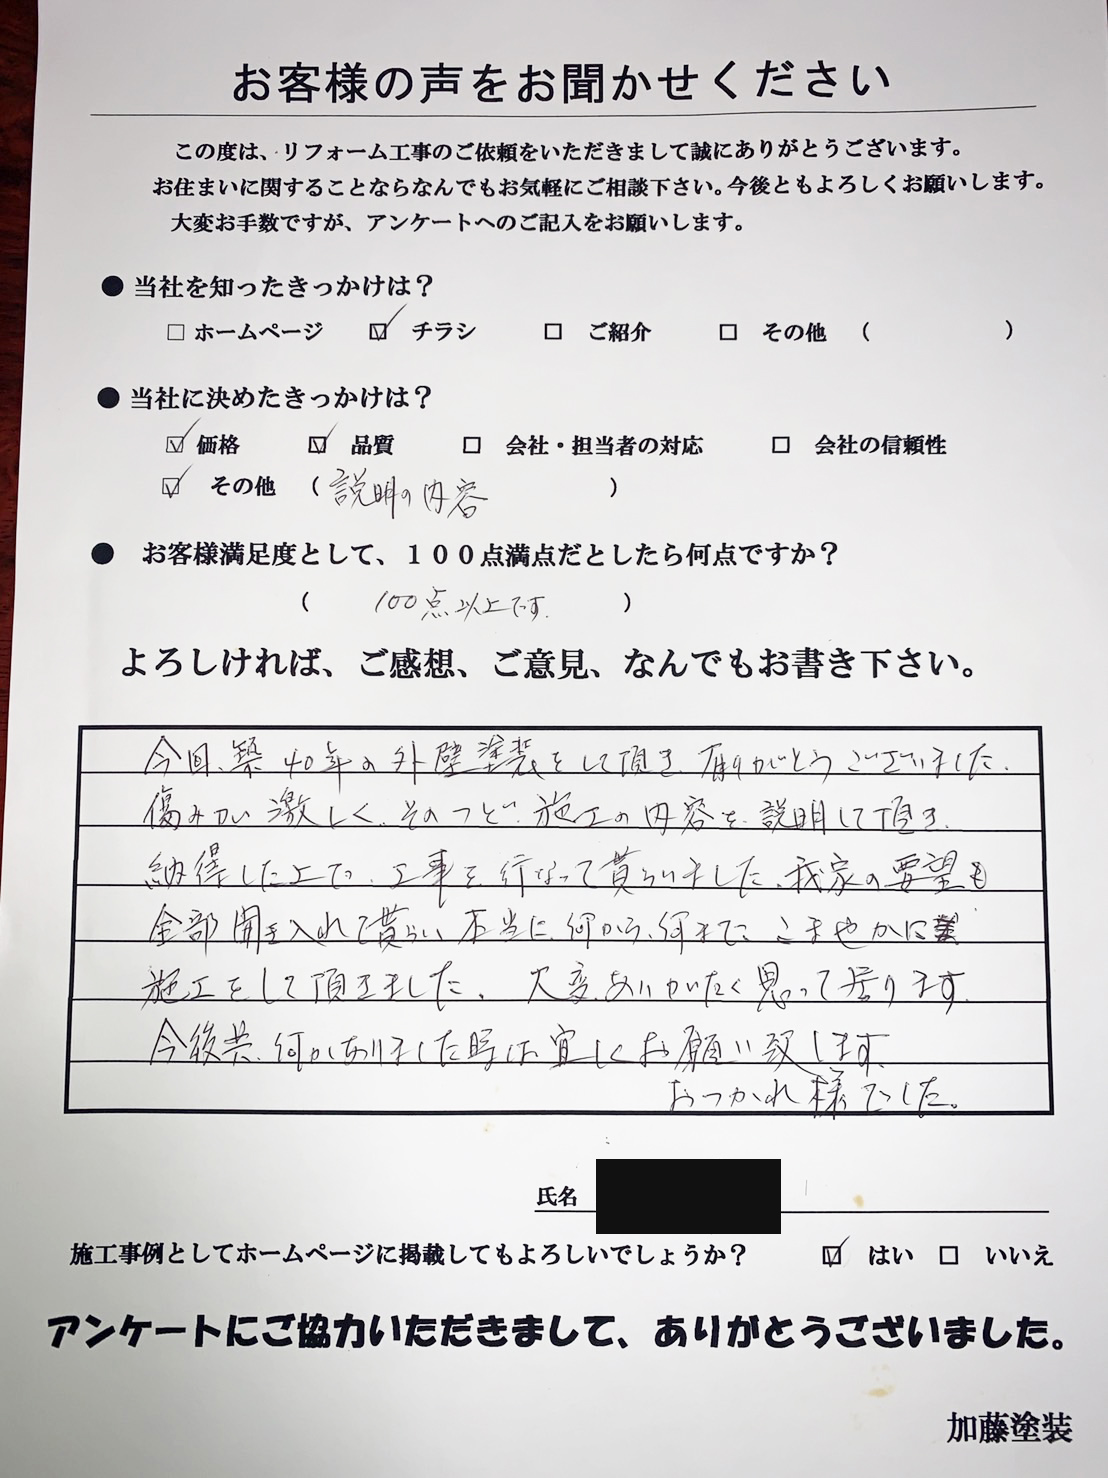 お客様の声をお聞かせください
この度は、リフォーム工事のご依頼をいただきまして誠にありがとうございます。
お住まいに関することならなんでもお気軽にご相談下さい。今後ともよろしくお願いします。
大変お手数ですが、アンケートへのご記入をお願いします。
● 当社を知ったきっかけは？
□ ホームページ ☑ チラシ □ ご紹介 □ その他 （ ）
● 当社に決めたきっかけは？
☑ 価格 ☑ 品質 □ 会社・担当者の対応 □ 会社の信頼性
☑ その他 （説明の内容 ）
● お客様満足度として、１００点満点だとしたら何点ですか？
（ 100点以上です. ）
よろしければ、ご感想、ご意見、なんでもお書き下さい。
今回、築40年の外壁塗装をして頂き、有りがとうございました.
傷みが激しく、そのつど、施工の内容を説明して頂き、
納得した上で、工事を行なって貰らいました、我家の要望も
全部聞き入れて貰らい本当に、何から、何まで、こまやかに
施工をして頂きました、大変ありがたく思って居ります.
今後共、何かありました時は宜しくお願い致します
おつかれ様でした。
氏名
施工事例としてホームページに掲載してもよろしいでしょうか？ ☑ はい □ いいえ
アンケートにご協力いただきまして、ありがとうございました。
加藤塗装